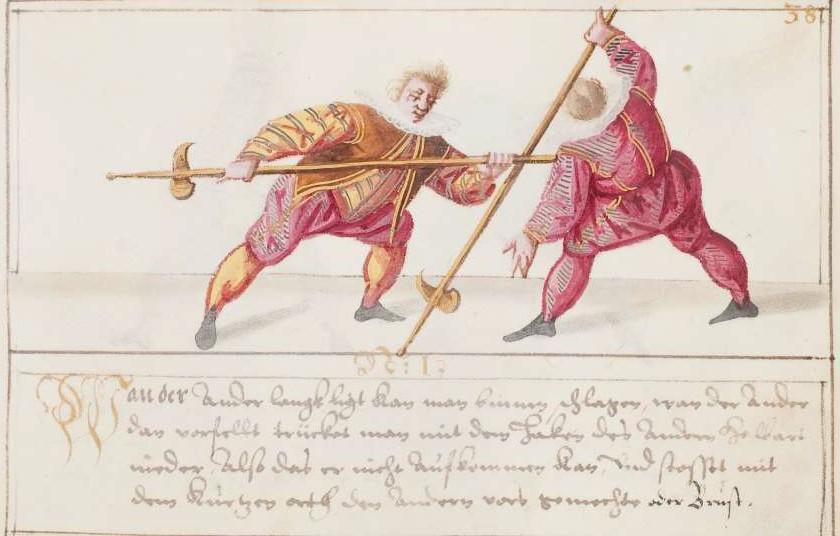 38
N: 1
Wan der Ander langk ligt kan man binnen schlagen, wan der Ander
dan vorfellt trücket man mit dem Haken des Andern Helbart
nieder, Also das er nicht Aufkommen kan, Und stosst mit
dem kurtzen orth den Andern vors gemechte oder Brust.